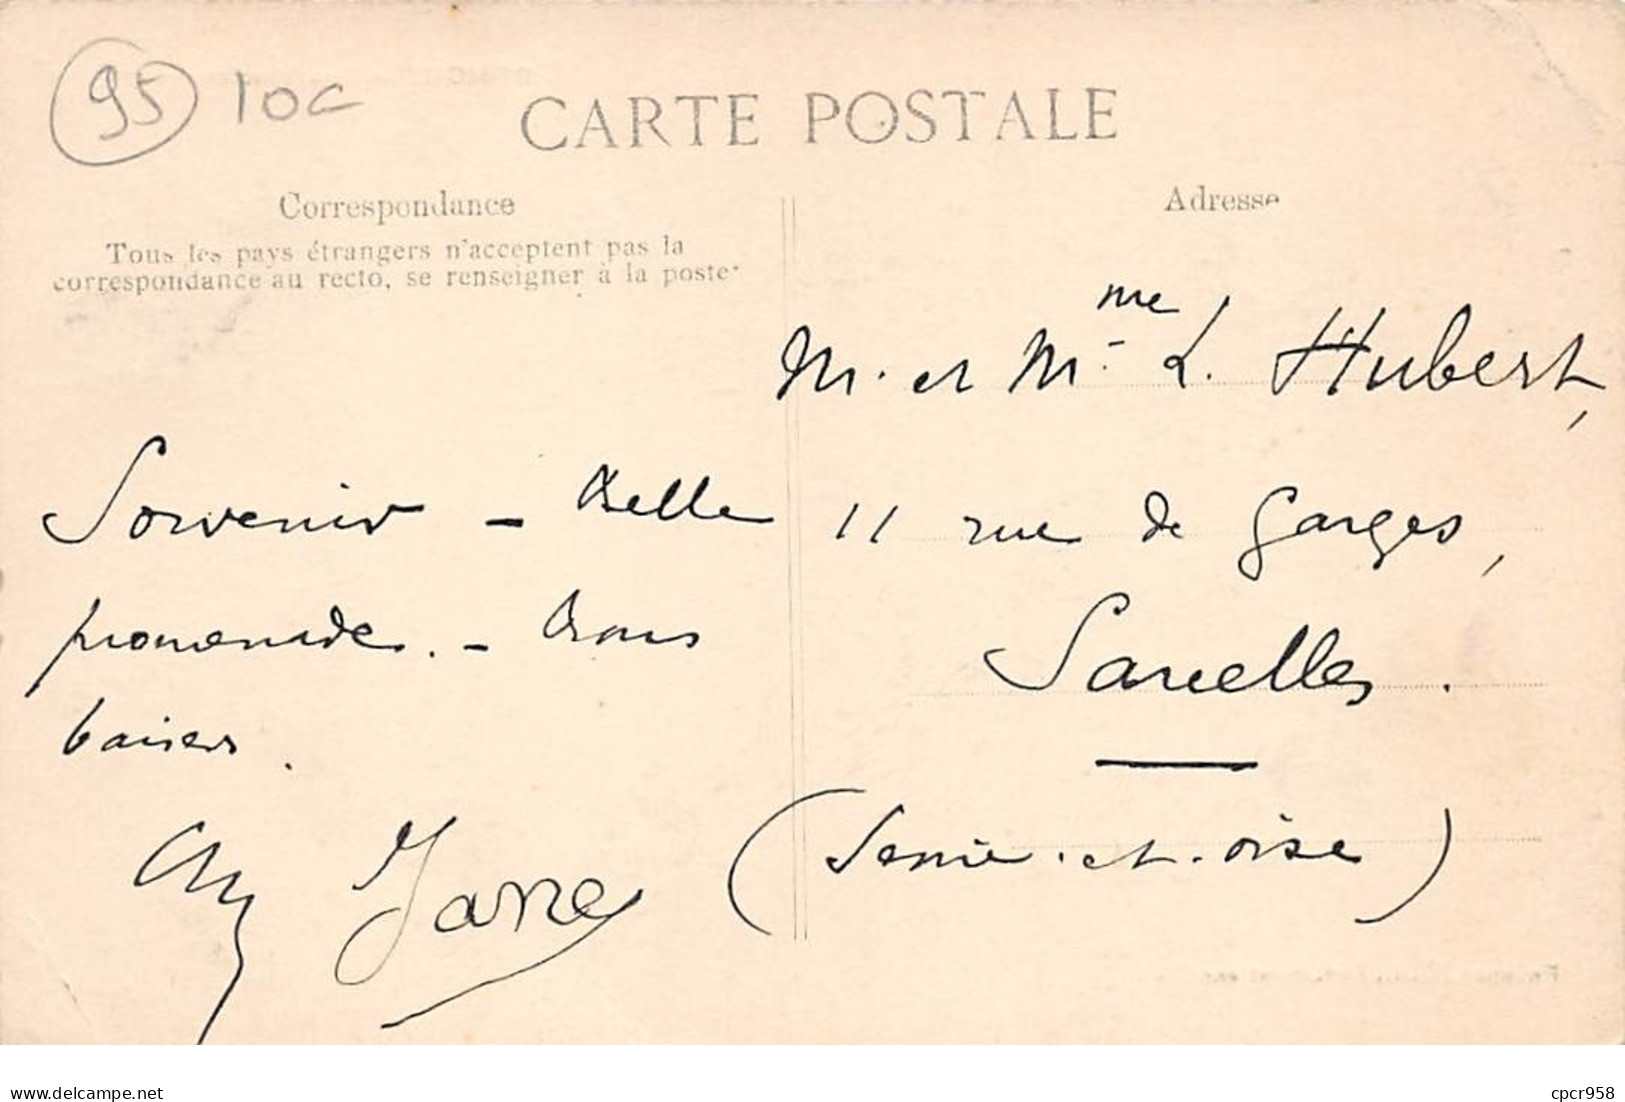 95 10c
CARTE POSTALE
Correspondance
Tous les pays étrangers n'acceptent pas la
correspondance au recto, se renseigner à la poste
Souvenir - Belle
promenade. - Bons
baisers.
Jane
Adresse
M. et Mme L. Hubert,
11 rue de Garges,
Sarcelles.
(Seine-et-oise)
delcampe.net
cpcr958